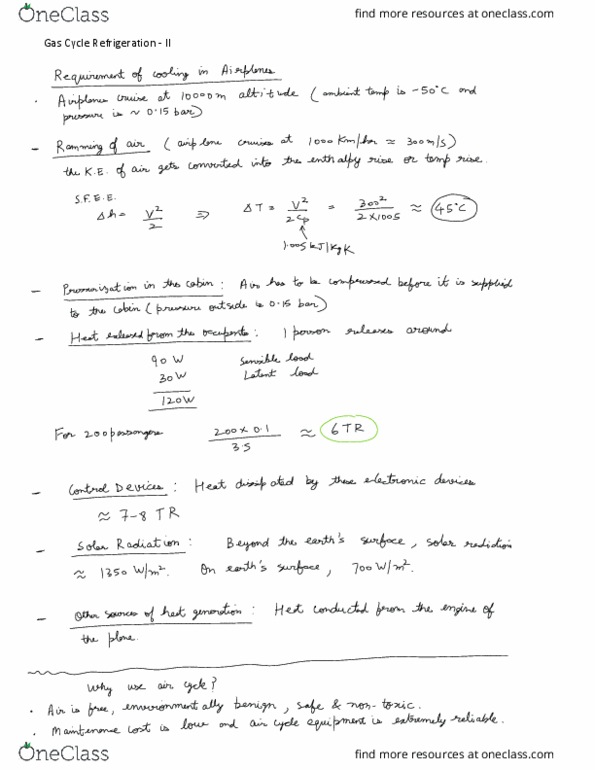 OneClass
find more resources at oneclass.com
Gas Cycle Refrigeration - II
Requirement of cooling in Airplanes
· Airplanes cruise at 10000m altitude (ambient temp is -50°C and
pressure is ~ 0.15 bar)
- Ramming of air (airplane cruises at 1000 Km/hr ≈ 300m/s)
the K.E. of air gets converted into the enthalpy rise or temp rise.
S.F.E.E.
Δh = V²/2 ⇒ ΔT = V²/2Cp = 300²/2×1005 ≈ 45°C
1.005 kJ/kgK
- Pressurization in the cabin : Air has to be compressed before it is supplied
to the cabin (pressure outside is 0.15 bar)
- Heat released from the occupants : 1 person releases around
90 W Sensible load
30W Latent load
120W
For 200 passengers 200×0.1/3.5 ≈ 6TR
- Control Devices : Heat dissipated by these electronic devices
≈ 7-8 TR
- Solar Radiation : Beyond the earth's surface, solar radiation
≈ 1350 W/m². On earth's surface, 700 W/m².
- Other sources of heat generation : Heat conducted from the engine of
the plane.
Why use air cycle?
· Air is free, environmentally benign, safe & non-toxic.
· Maintenance cost is low and air cycle equipment is extremely reliable.
OneClass
find more resources at oneclass.com